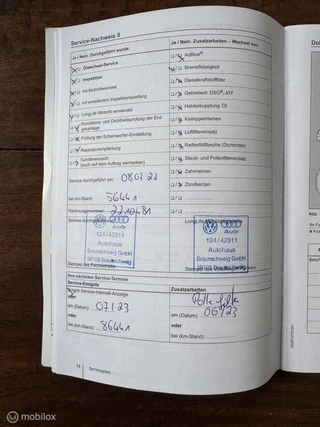 Service-Nachweis 5
Ja / Nein. Durchgeführt wurde:
Ja / Nein. Zusatzarbeiten – Wechsel von:
Ölwechsel-Service
AdBlue®
Inspektion
Bremsflüssigkeit
mit Motorölwechsel
Dieselkraftstofffilter
mit erweitertem Inspektionsumfang
Getriebeöl: DSG®, ATF
LongLife Motoröl verwendet
Haldexkupplung: Öl
Korrosions- und Dichtheitsprüfung der Erdgasanlage
Keilrippenriemen
Prüfung der Scheinwerfer-Einstellung
Luftfiltereinsatz
Reparaturempfehlung
Reifenfüllflasche (Dichtmittel)
Kundenwunsch
(auch auf dem Auftrag vermerken)
Staub- und Pollenfiltereinsatz
Zahnriemen
Service durchgeführt am:
Zündkerzen
bei km-Stand:
56441
Rechnungsnummer:
Service durchgeführt
Audi
124/42811
Autohaus
Braunschweig GmbH
38109 Braunschweig
Audi
124/42811
Autohaus
Braunschweig GmbH
38109 Braunschweig
Stempel des Fachbetriebs
Ihre nächsten Service-Termine
Service-Ereignis
Zusatzarbeiten
Nach Service-Intervall-Anzeige
oder
am (Datum)
07/23
am (Datum)
06/23
oder
oder
bei (km-Stand):
86441
bei (km-Stand):
14
Serviceplan